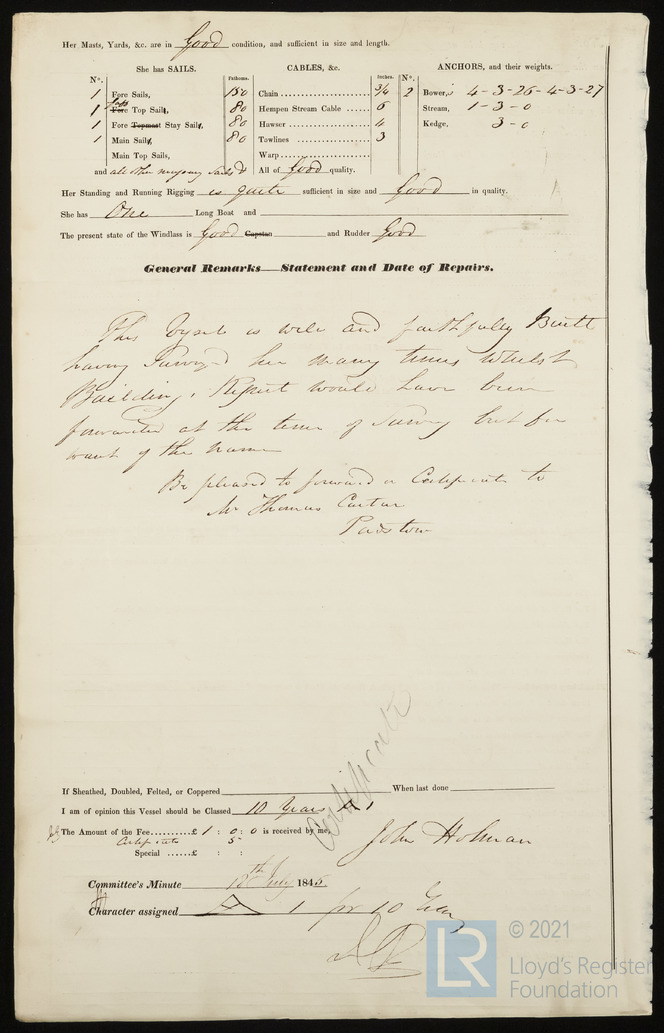 Her Masts, Yards, &c. are in Good condition, and sufficient in size and length.
She has SAILS.
CABLES, &c.
ANCHORS, and their weights.
N°.
Fathoms.
Inches.
N°.
1 Fore Sails,
1 Fore Top Sails,
1 Fore Topmast Stay Sails,
1 Main Sails,
Main Top Sails,
and all other necessary sails &
Chain 150 3/4
Hempen Stream Cable 80 6
Hawser 80 4
Towlines 80 3
Warp
All of Good quality.
2 Bowers 4-3-26-4-3-27
Stream, 1-3-0
Kedge, 3-0
Her Standing and Running Rigging is quite sufficient in size and Good in quality.
She has One Long Boat and
The present state of the Windlass is Good Capstan and Rudder Good
General Remarks—Statement and Date of Repairs.
This Vessele is well and faithfully Built
having Survey'd her many times Whilst
Building. Report would have been
forwarded at the time of survey but for
want of the name
Be pleased to forward a Certificate to
Mr Thomas Carter
Padstow
Certificate
If Sheathed, Doubled, Felted, or Coppered When last done
I am of opinion this Vessel should be Classed 10 Years A 1
The Amount of the Fee £ 1 : 0 : 0 is received by me,
Certificate 5
John Holman
Special £ : :
Committee's Minute 18th July 1845.
Character assigned A 1 for 10 Years
LR
© 2021
Lloyd's Register
Foundation